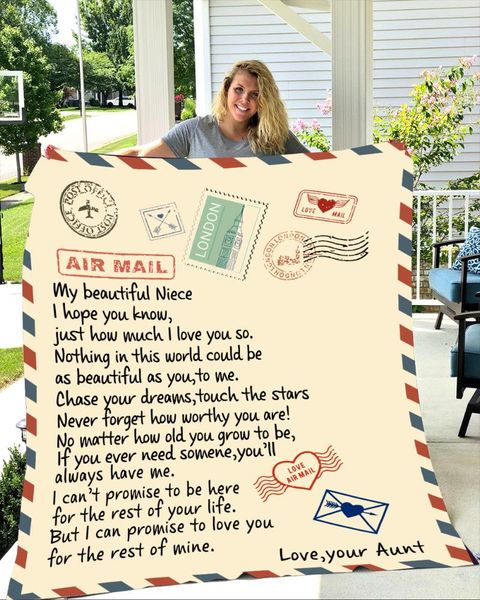 POST OFFICE
POST OFFICE
LONDON
LOVE MAIL
LONDON LONDON LONDON
LONDON
AIR MAIL
My beautiful Niece
I hope you know,
just how much I love you so.
Nothing in this world could be
as beautiful as you,to me.
Chase your dreams,touch the stars
Never forget how worthy you are!
No matter how old you grow to be,
If you ever need somene,you'll
always have me.
I can't promise to be here
for the rest of your life.
But I can promise to love you
for the rest of mine.
LOVE
AIR MAIL
Love,your Aunt